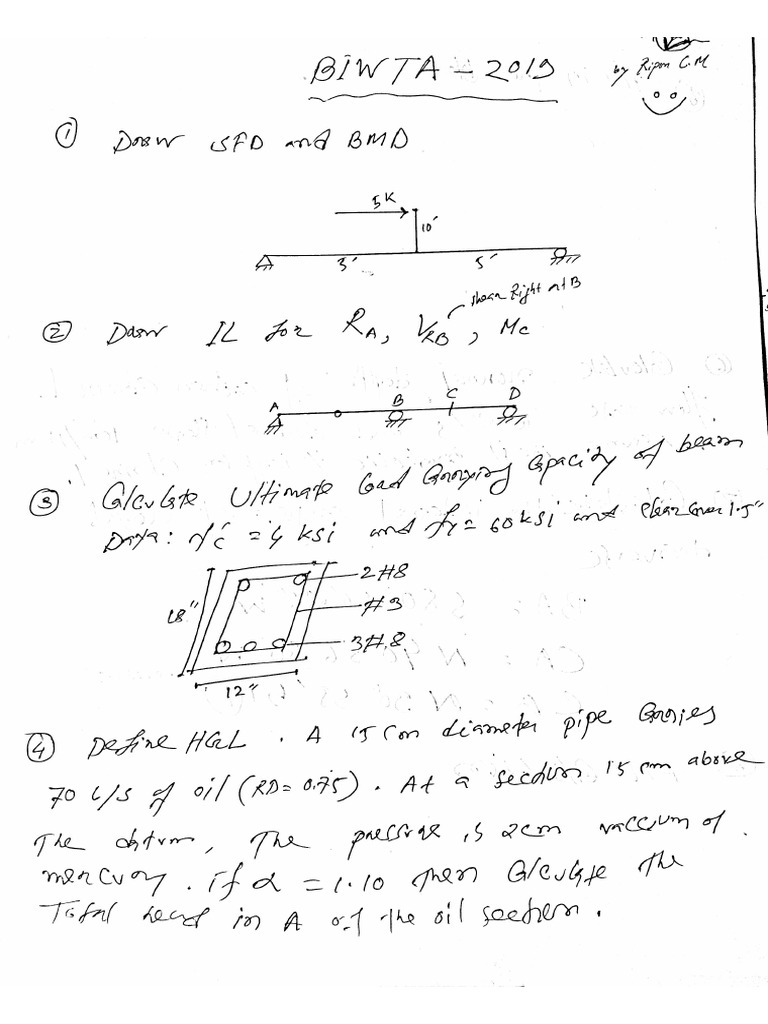 BIWTA - 2019
by Ripon C.M
① Draw SFD and BMD
5K
10'
3'
5'
Shear Right at B
② Draw IL for RA, VRB, Mc
A
B
C
D
③ Calculate Ultimate Load Carrying Capacity of beam
Data: f'c = 4 ksi and fy = 60 ksi and clear cover 1.5"
2#8
#3
18"
3#8
12"
④ Define HGL. A 15 cm diameter pipe Carries
70 L/S of oil (RD = 0.75). At a section 15 cm above
The datum, The pressure is 2cm vaccium of
mercury. if α = 1.10 then Calculate the
Total head in A of the oil section.